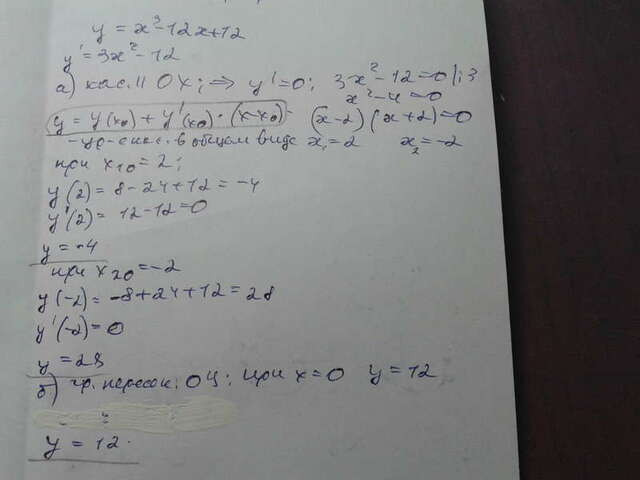 y = x³-12x+12
y' = 3x²-12
а) кас. || OX; => y'=0; 3x²-12=0 |:3
x²-4=0
y = y(x₀) + y'(x₀)·(x-x₀) (x-2)(x+2)=0
-ур-е кас. в общем виде x₁=2 x₂=-2
при x₁₀=2;
y(2) = 8-24+12 = -4
y'(2) = 12-12=0
y = -4
при x₂₀=-2
y(-2) = -8+24+12 = 28
y'(-2)=0
y = 28
б) гр. пересек. OЦ; при x=0 y=12
y = 12.